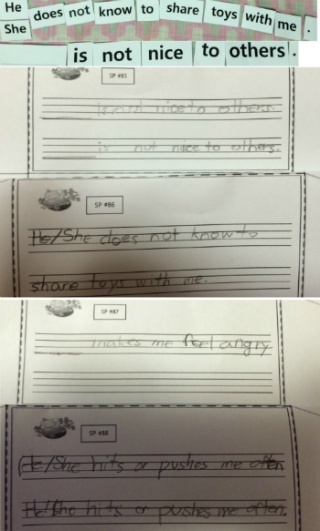 He
She does not know to share toys with me .
is not nice to others .
SP #85
is not nice to others.
is not nice to others.
SP #86
He/She does not know to
share toys with me.
SP #87
makes me feel angry
SP #88
He/She hits or pushes me often
He/She hits or pushes me often.